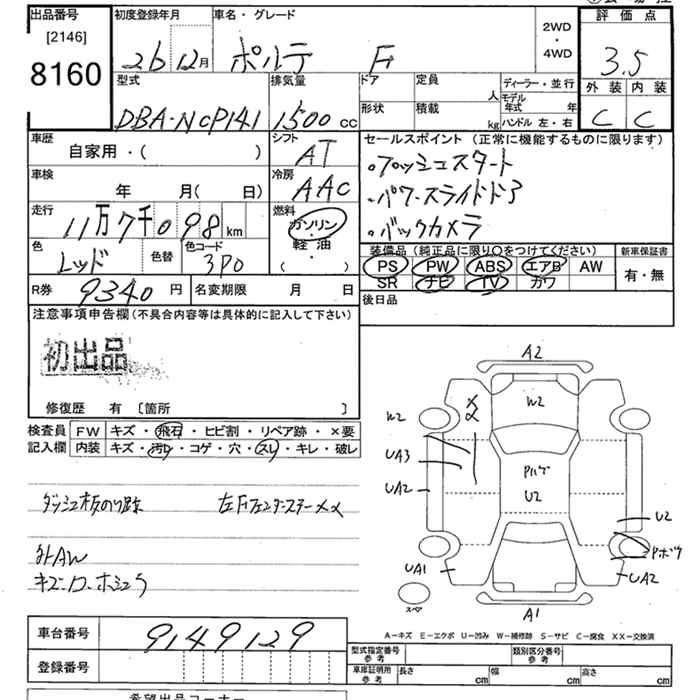 出品番号 初度登録年月 車名・グレード 2WD・4WD 評価点
[2146]
8160
26 12月 ポルテ F 3.5
型式 排気量 ドア 定員 人 ディーラー・並行 外装 内装
DBA-NCP141 1500 CC 形状 積載 kg モデル年式 年 C C
ハンドル 左・右
車歴 シフト セールスポイント (正常に機能するものに限ります)
自家用・( ) AT
・プッシュスタート
車検 冷房
年 月( 日) AAC
・パワースライドドア
走行 燃料
11万7千098 km ガソリン・軽油・( )
・バックカメラ
色 色替 色コード 装備品 (純正品に限り○をつけてください) 新車保証書
レッド 3P0 PS PW ABS エアB AW 有・無
SR ナビ TV カワ
R券 9340円 名変期限 月 日 後日品
注意事項申告欄(不具合内容等は具体的に記入して下さい)
初出品
修復歴 有 〔箇所 〕
検査員記入欄 FW キズ・飛石・ヒビ割・リペア跡・×要
内装 キズ・汚レ・コゲ・穴・スレ・キレ・破レ
ダッシュ板のり跡
外AW
キズ・
A2
W2
W2
UA3
UA2
U2
U2
UA1
UA2
スペア
A1
A-キズ E-エクボ U-凹み W-補修跡 S-サビ C-腐食 XX-交換済
車台番号 9149129
登録番号
型式指定番号 参考 類別区分番号 参考
車庫証明用 参考 長さ cm 幅 cm 高さ cm
希望出品コーナー